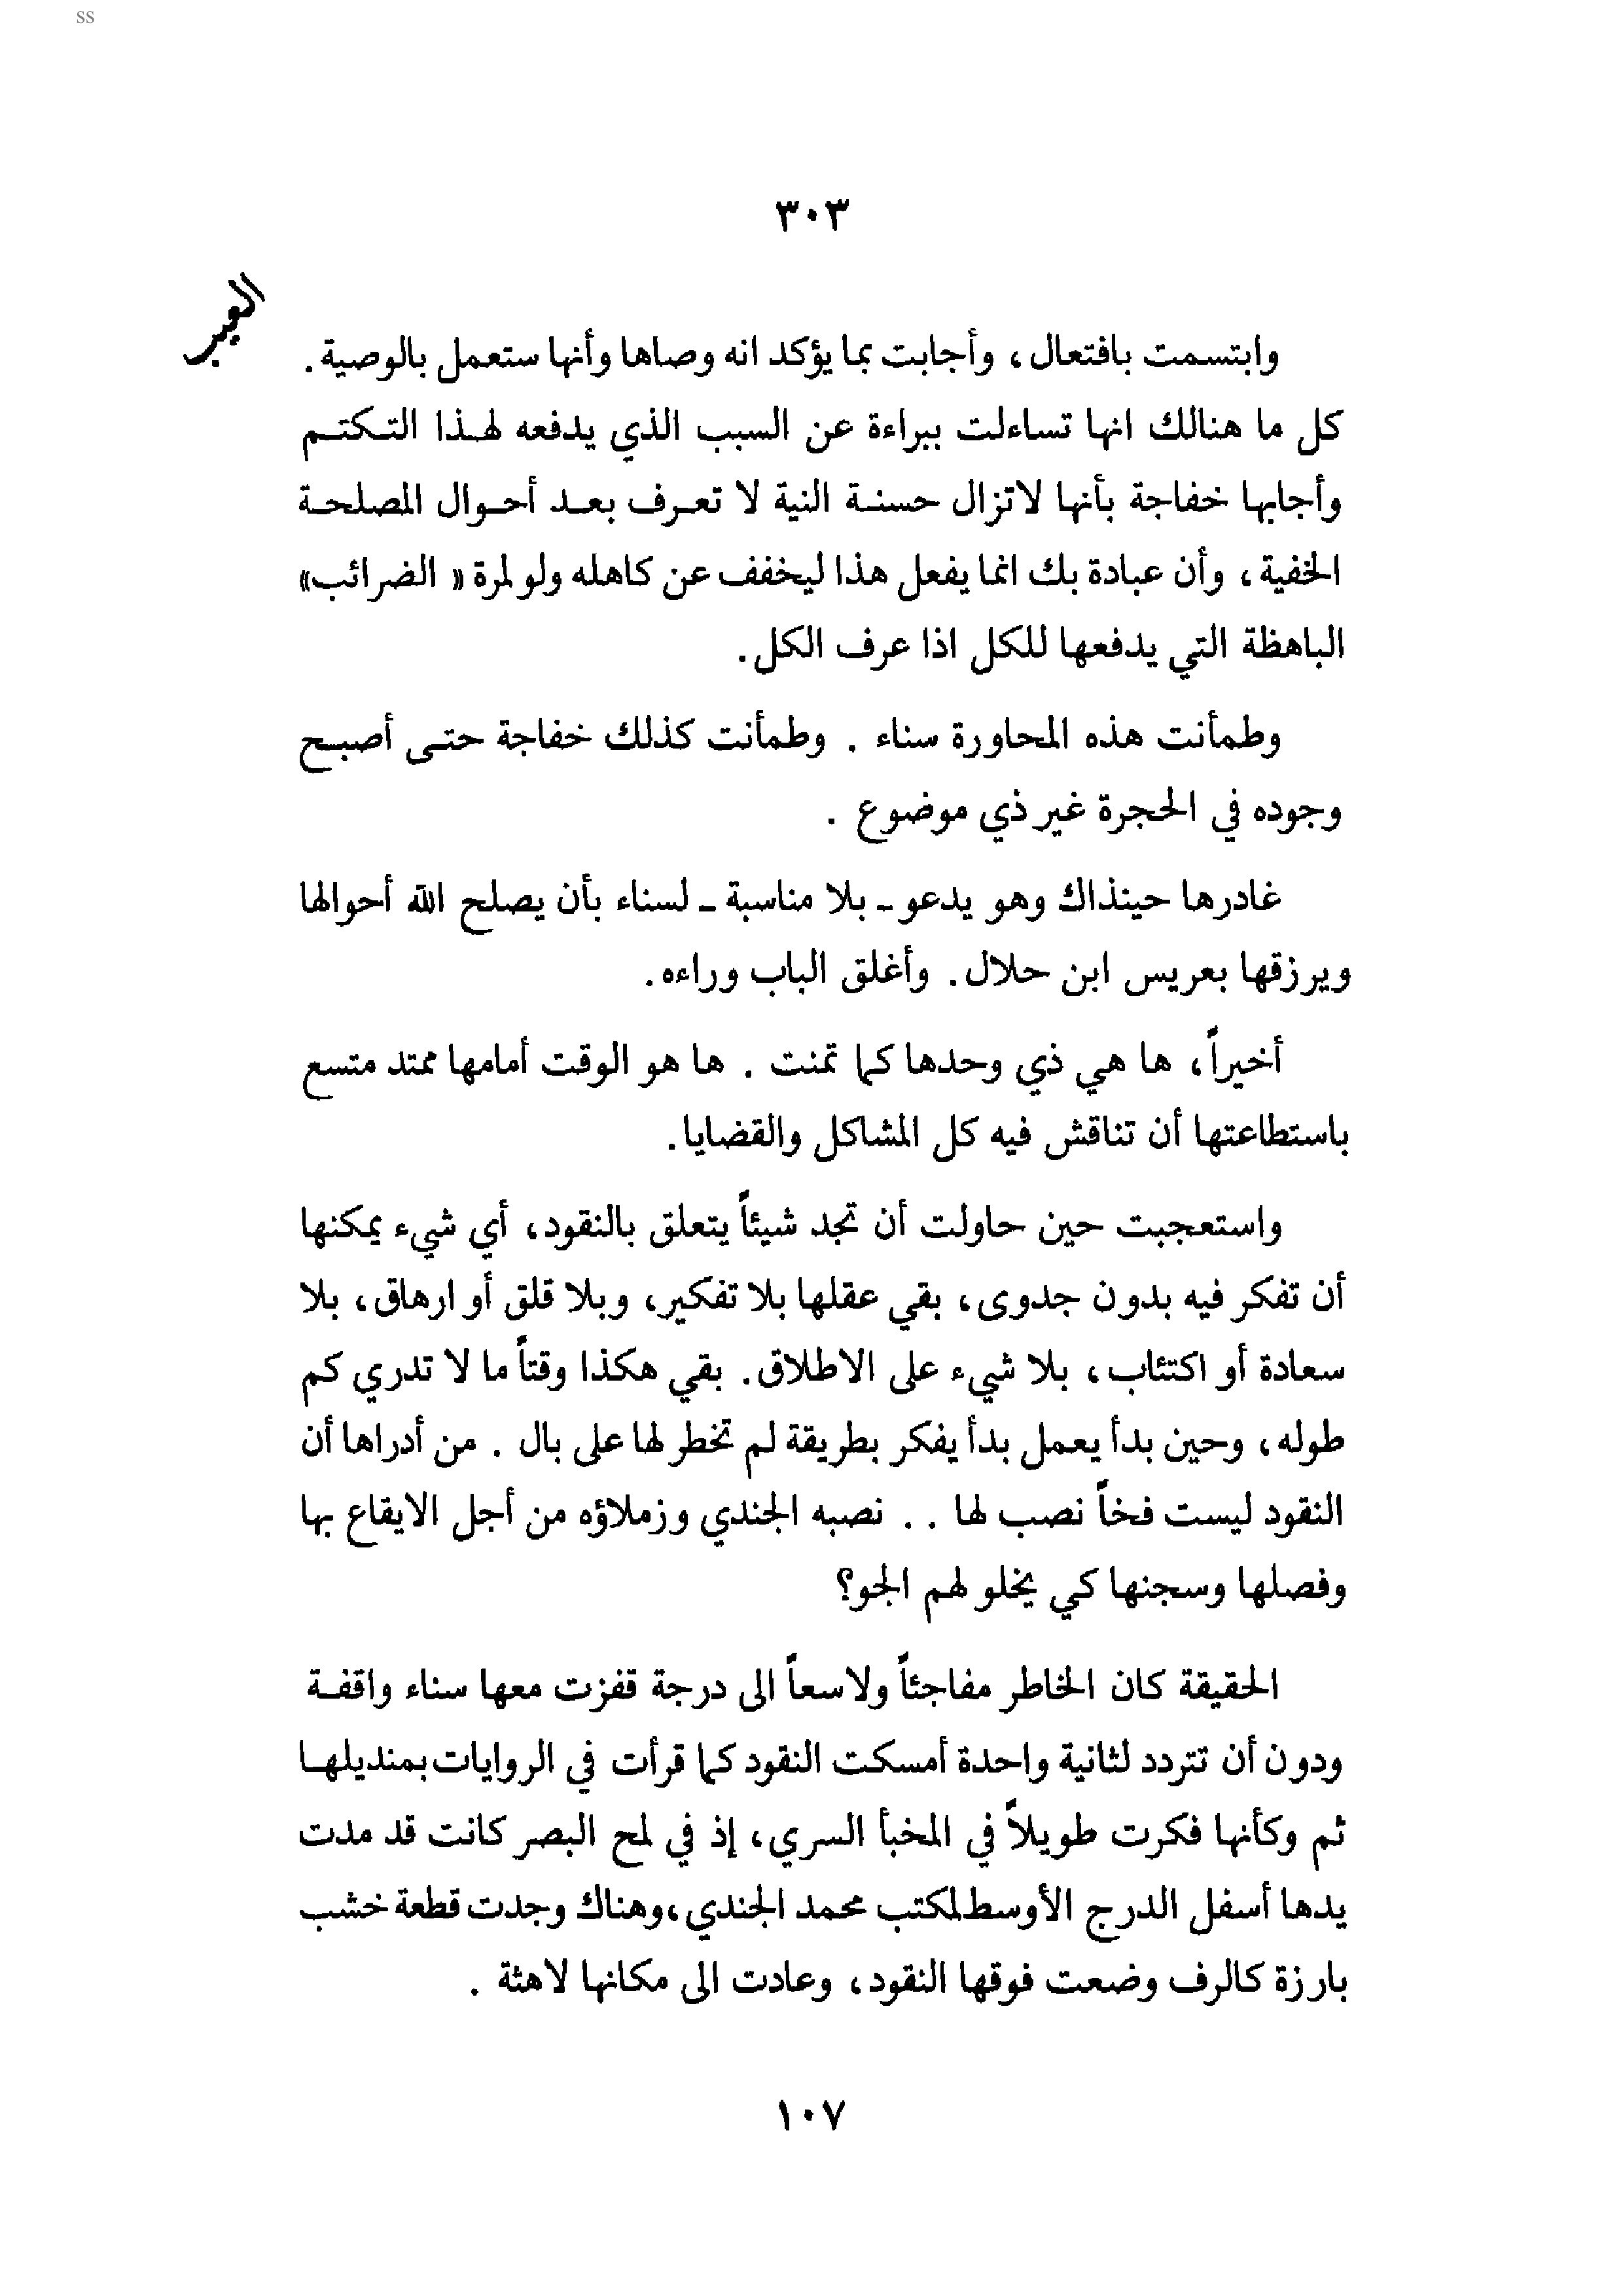 ss
٣٠٣
العيب
وابتسمت بافتعال ، وأجابت بما يؤكد انه وصاها وأنها ستعمل بالوصية .
كل ما هنالك انها تساءلت ببراءة عن السبب الذي يدفعه لهذا التكتم
وأجابها خفاجة بأنها لاتزال حسنة النية لا تعرف بعد أحوال المصلحة
الخفية ، وأن عبادة بك انما يفعل هذا ليخفف عن كاهله ولو لمرة « الضرائب»
الباهظة التي يدفعها للكل اذا عرف الكل .
وطمأنت هذه المحاورة سناء . وطمأنت كذلك خفاجة حتى أصبح
وجوده في الحجرة غير ذي موضوع .
غادرها حينذاك وهو يدعو ـ بلا مناسبة ـ لسناء بأن يصلح الله أحوالها
ويرزقها بعريس ابن حلال . وأغلق الباب وراءه .
أخيراً ، ها هي ذي وحدها كما تمنت . ها هو الوقت أمامها ممتد متسع
باستطاعتها أن تناقش فيه كل المشاكل والقضايا .
واستعجبت حين حاولت أن تجد شيئاً يتعلق بالنقود ، أي شيء يمكنها
أن تفكر فيه بدون جدوى ، بقي عقلها بلا تفكير ، وبلا قلق أو ارهاق ، بلا
سعادة أو اكتئاب ، بلا شيء على الاطلاق . بقي هكذا وقتاً ما لا تدري كم
طوله ، وحين بدأ يعمل بدأ يفكر بطريقة لم تخطر لها على بال . من أدراها أن
النقود ليست فخاً نصب لها . . نصبه الجندي وزملاؤه من أجل الايقاع بها
وفصلها وسجنها كي يخلو لهم الجو؟
الحقيقة كان الخاطر مفاجئاً ولاسعاً الى درجة قفزت معها سناء واقفة
ودون أن تتردد لثانية واحدة أمسكت النقود كما قرأت في الروايات بمنديلها
ثم وكأنها فكرت طويلاً في المخبأ السري ، إذ في لمح البصر كانت قد مدت
يدها أسفل الدرج الأوسط لمكتب محمد الجندي ،وهناك وجدت قطعة خشب
بارزة كالرف وضعت فوقها النقود ، وعادت الى مكانها لاهثة .
١٠٧